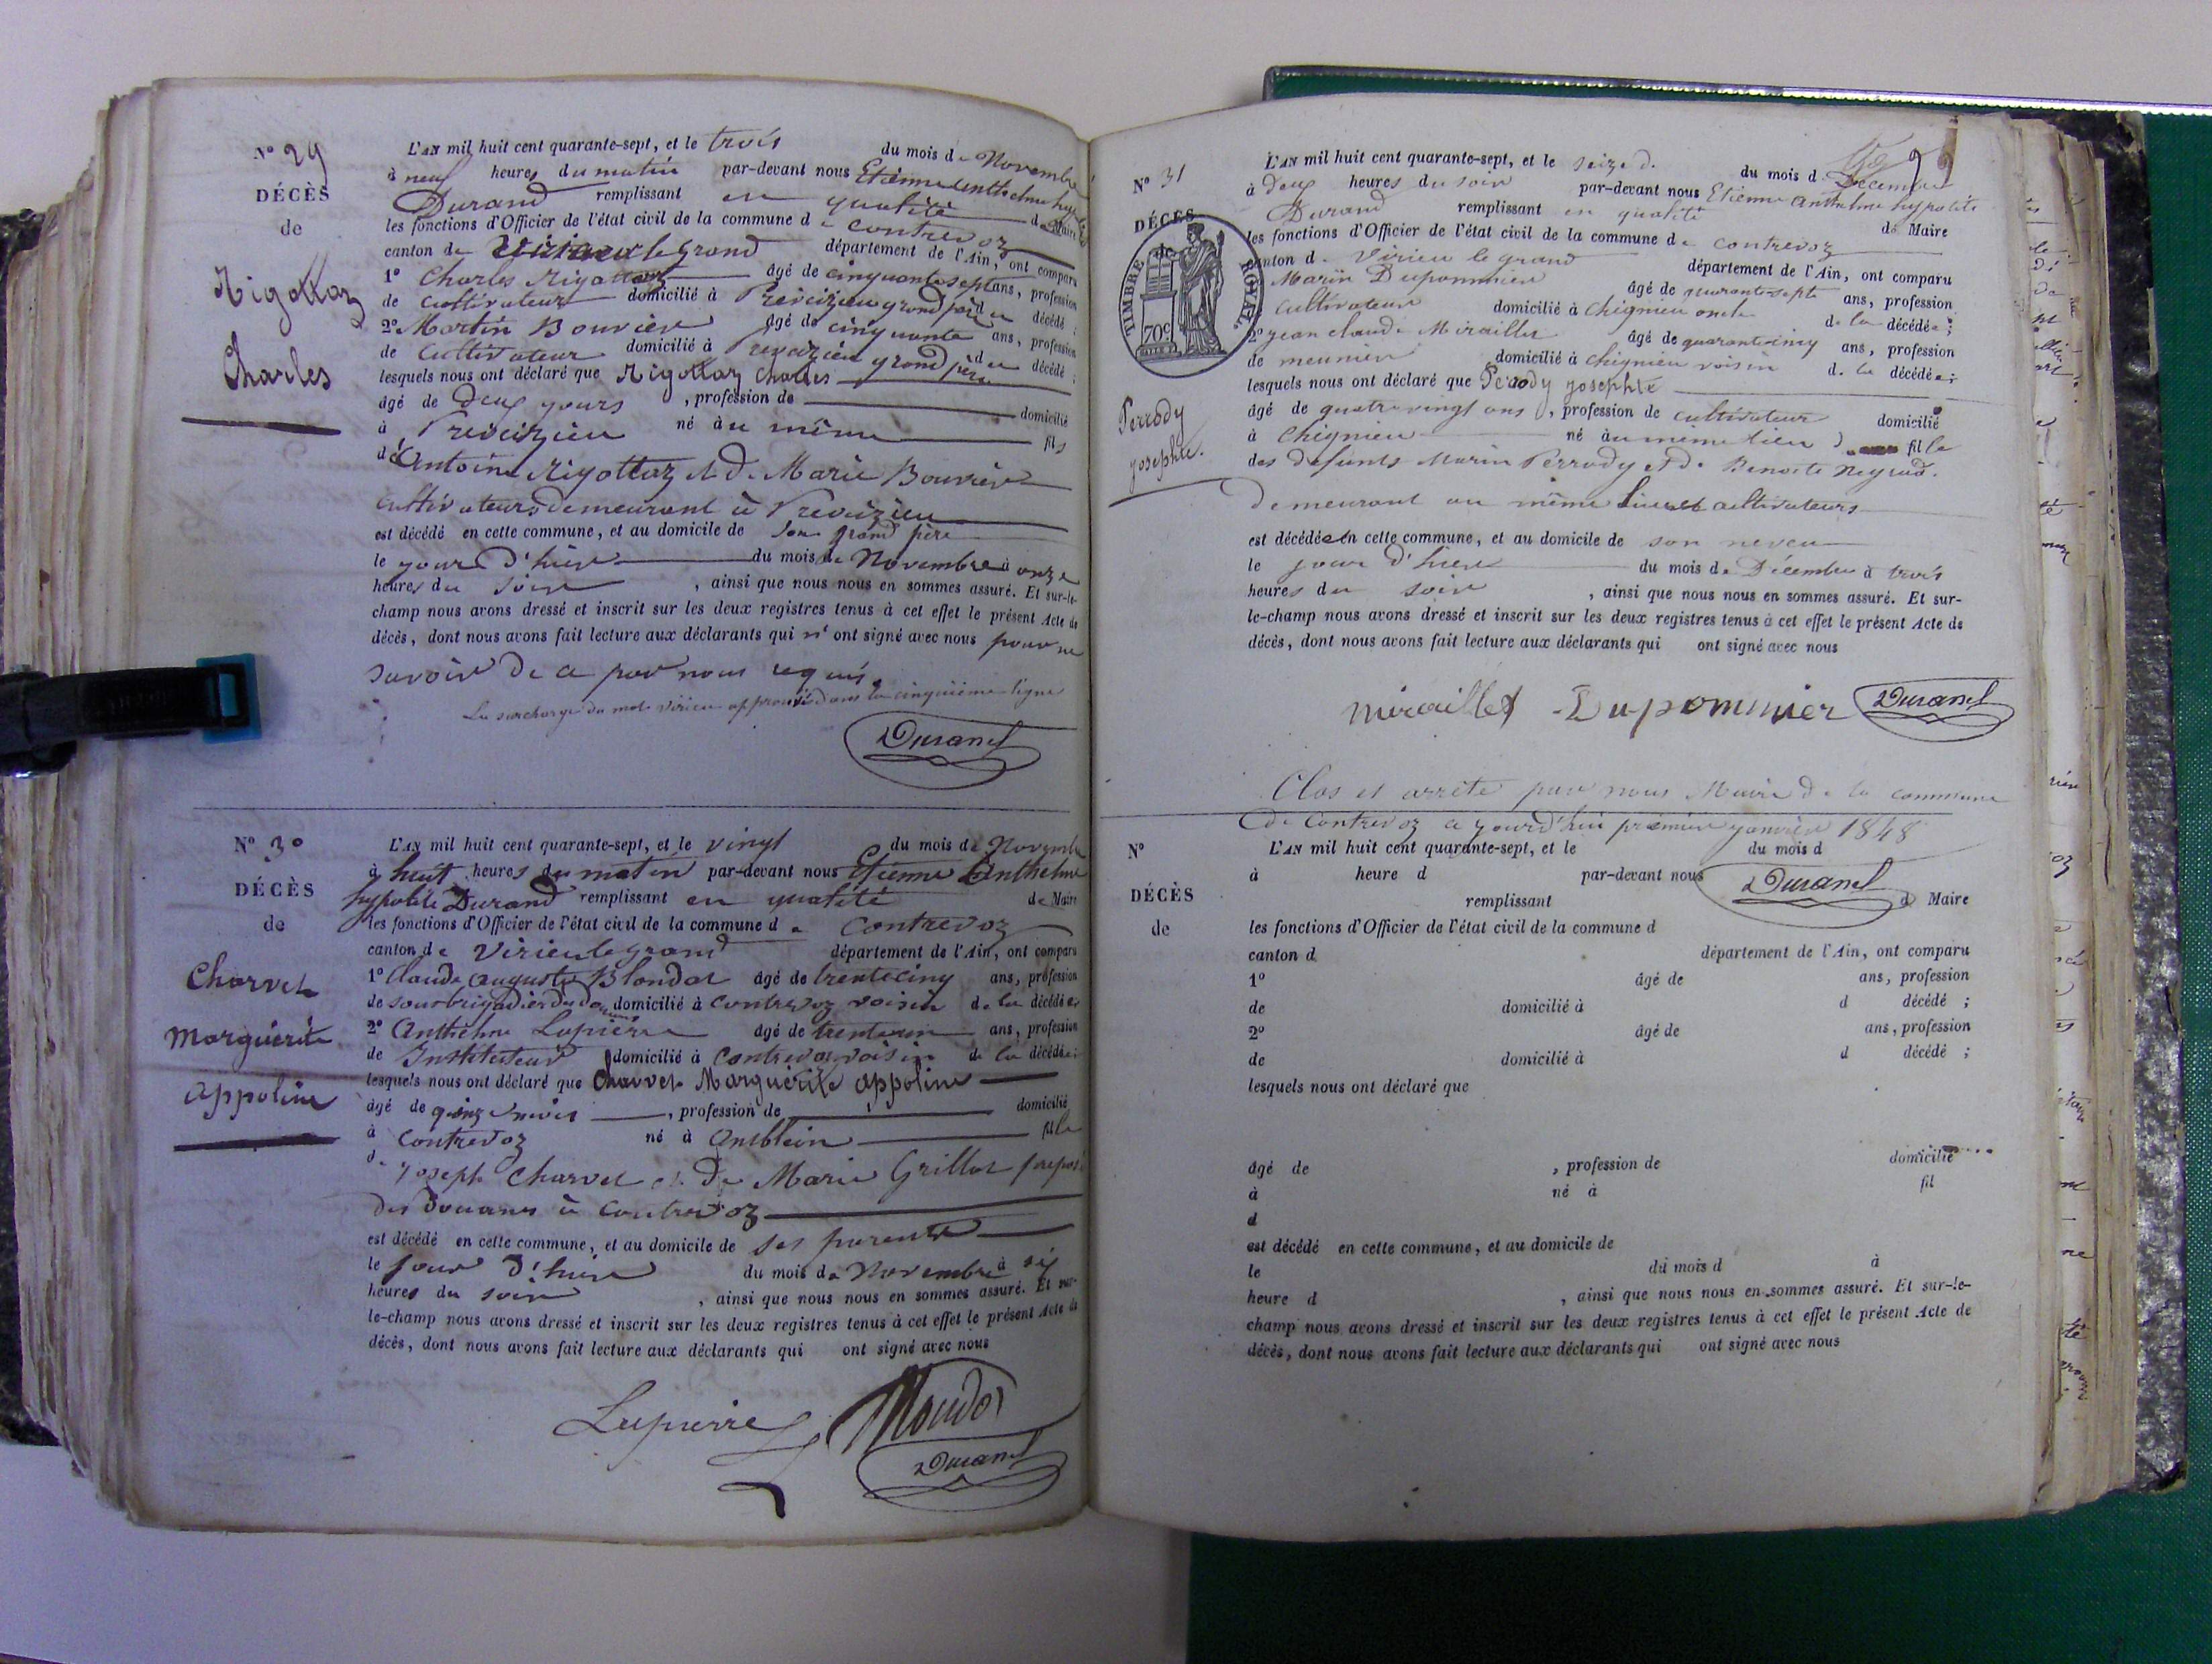 N° 29
DÉCÈS
de
Rigottaz
Charles
L'AN mil huit cent quarante-sept, et le trois du mois de Novembre
à neuf heures du matin par-devant nous Etienne Anthelme hypolite
Durand remplissant en qualité de Maire
les fonctions d'Officier de l'état civil de la commune de Contrevoz
canton de Virieu le grand département de l'Ain, ont comparu
1° Charles Rigottaz âgé de cinquante sept ans, profession
de cultivateur domicilié à Preveizieu grand père du décédé ;
2° Martin Bouvier âgé de cinquante ans, profession
de Cultivateur domicilié à Preveizieu grand père du décédé ;
lesquels nous ont déclaré que Rigottaz Charles
âgé de deux jours , profession de domicilié
à Preveizieu né au même fils
d'Antoine Rigottaz et de Marie Bouvier
cultivateurs demeurant à Preveizieu
est décédé en cette commune, et au domicile de son grand père
le jour d'hier du mois de Novembre à onze
heures du soir , ainsi que nous nous en sommes assuré. Et sur-le-
champ nous avons dressé et inscrit sur les deux registres tenus à cet effet le présent Acte de
décès, dont nous avons fait lecture aux déclarants qui n'ont signé avec nous pour ne
savoir de ce par nous requis.
La surcharge du mot virieu approuvé dans la cinquième ligne
Durand
N° 30
DÉCÈS
de
Charvet
Marguerite
appoline
L'AN mil huit cent quarante-sept, et le vingt du mois de Novembre
à huit heures du matin par-devant nous Etienne Anthelme
hypolite Durand remplissant en qualité de Maire
les fonctions d'Officier de l'état civil de la commune de Contrevoz
canton de Virieu le grand département de l'Ain, ont comparu
1° Claude auguste Blondot âgé de trente cinq ans, profession
de sous brigadier domicilié à Contrevoz voisin de la décédée
2° Anthelme Lapierre âgé de trente un ans, profession
de Instituteur domicilié à Contrevoz voisin de la décédée ;
lesquels nous ont déclaré que Charvet Marguerite appoline
âgé de quinze mois , profession de domicilié
à Contrevoz né à Anblein fille
de joseph Charvet et de Marie Grillot préposé
des Douanes à Contrevoz
est décédé en cette commune, et au domicile de ses parents
le jour d'hier du mois de Novembre à six
heures du soir , ainsi que nous nous en sommes assuré. Et sur-
le-champ nous avons dressé et inscrit sur les deux registres tenus à cet effet le présent Acte de
décès, dont nous avons fait lecture aux déclarants qui ont signé avec nous
Lapierre Blondot
Durand
N° 31
DÉCÈS
de
TIMBRE ROYAL
70c
Perrody
josephte.
L'AN mil huit cent quarante-sept, et le seize d. du mois de Décembre
à deux heures du soir par-devant nous Etienne anthelme hypolite
Durand remplissant en qualité de Maire
les fonctions d'Officier de l'état civil de la commune de Contrevoz
canton de Virieu le grand département de l'Ain, ont comparu
Marin Dupommier âgé de quarante sept ans, profession
cultivateur domicilié à Chignieu oncle de la décédée ;
2° jean claude Miraillet âgé de quarante cinq ans, profession
de meunier domicilié à Chignieu voisin de la décédée ;
lesquels nous ont déclaré que Perrody josephte
âgé de quatre vingt ans , profession de cultivateur domicilié
à Chignieu né au meme lieu fille
des défunts Marin Perrody et de Benoite Neyrod.
demeurant au même lieu et cultivateurs
est décédée en cette commune, et au domicile de son neveu
le jour d'hier du mois de Décembre à trois
heures du soir , ainsi que nous nous en sommes assuré. Et sur-
le-champ nous avons dressé et inscrit sur les deux registres tenus à cet effet le présent Acte de
décès, dont nous avons fait lecture aux déclarants qui ont signé avec nous
Miraillet Dupommier Durand
Clos et arrêté par nous Maire de la commune
de Contrevoz ce jourd'hui premier janvier 1848
Durand
N°
DÉCÈS
de
L'AN mil huit cent quarante-sept, et le du mois d
à heure d par-devant nous
remplissant d Maire
les fonctions d'Officier de l'état civil de la commune d
canton d département de l'Ain, ont comparu
1° âgé de ans, profession
de domicilié à d décédé ;
2° âgé de ans, profession
de domicilié à d décédé ;
lesquels nous ont déclaré que
âgé de , profession de domicilié
à né à fil
d
est décédé en cette commune, et au domicile de
le du mois d à
heure d , ainsi que nous nous en sommes assuré. Et sur-le-
champ nous avons dressé et inscrit sur les deux registres tenus à cet effet le présent Acte de
décès, dont nous avons fait lecture aux déclarants qui ont signé avec nous